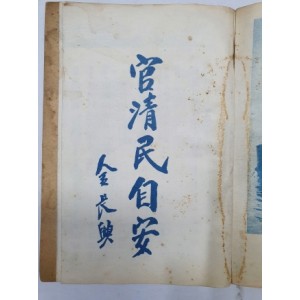 官清民自安
金長興